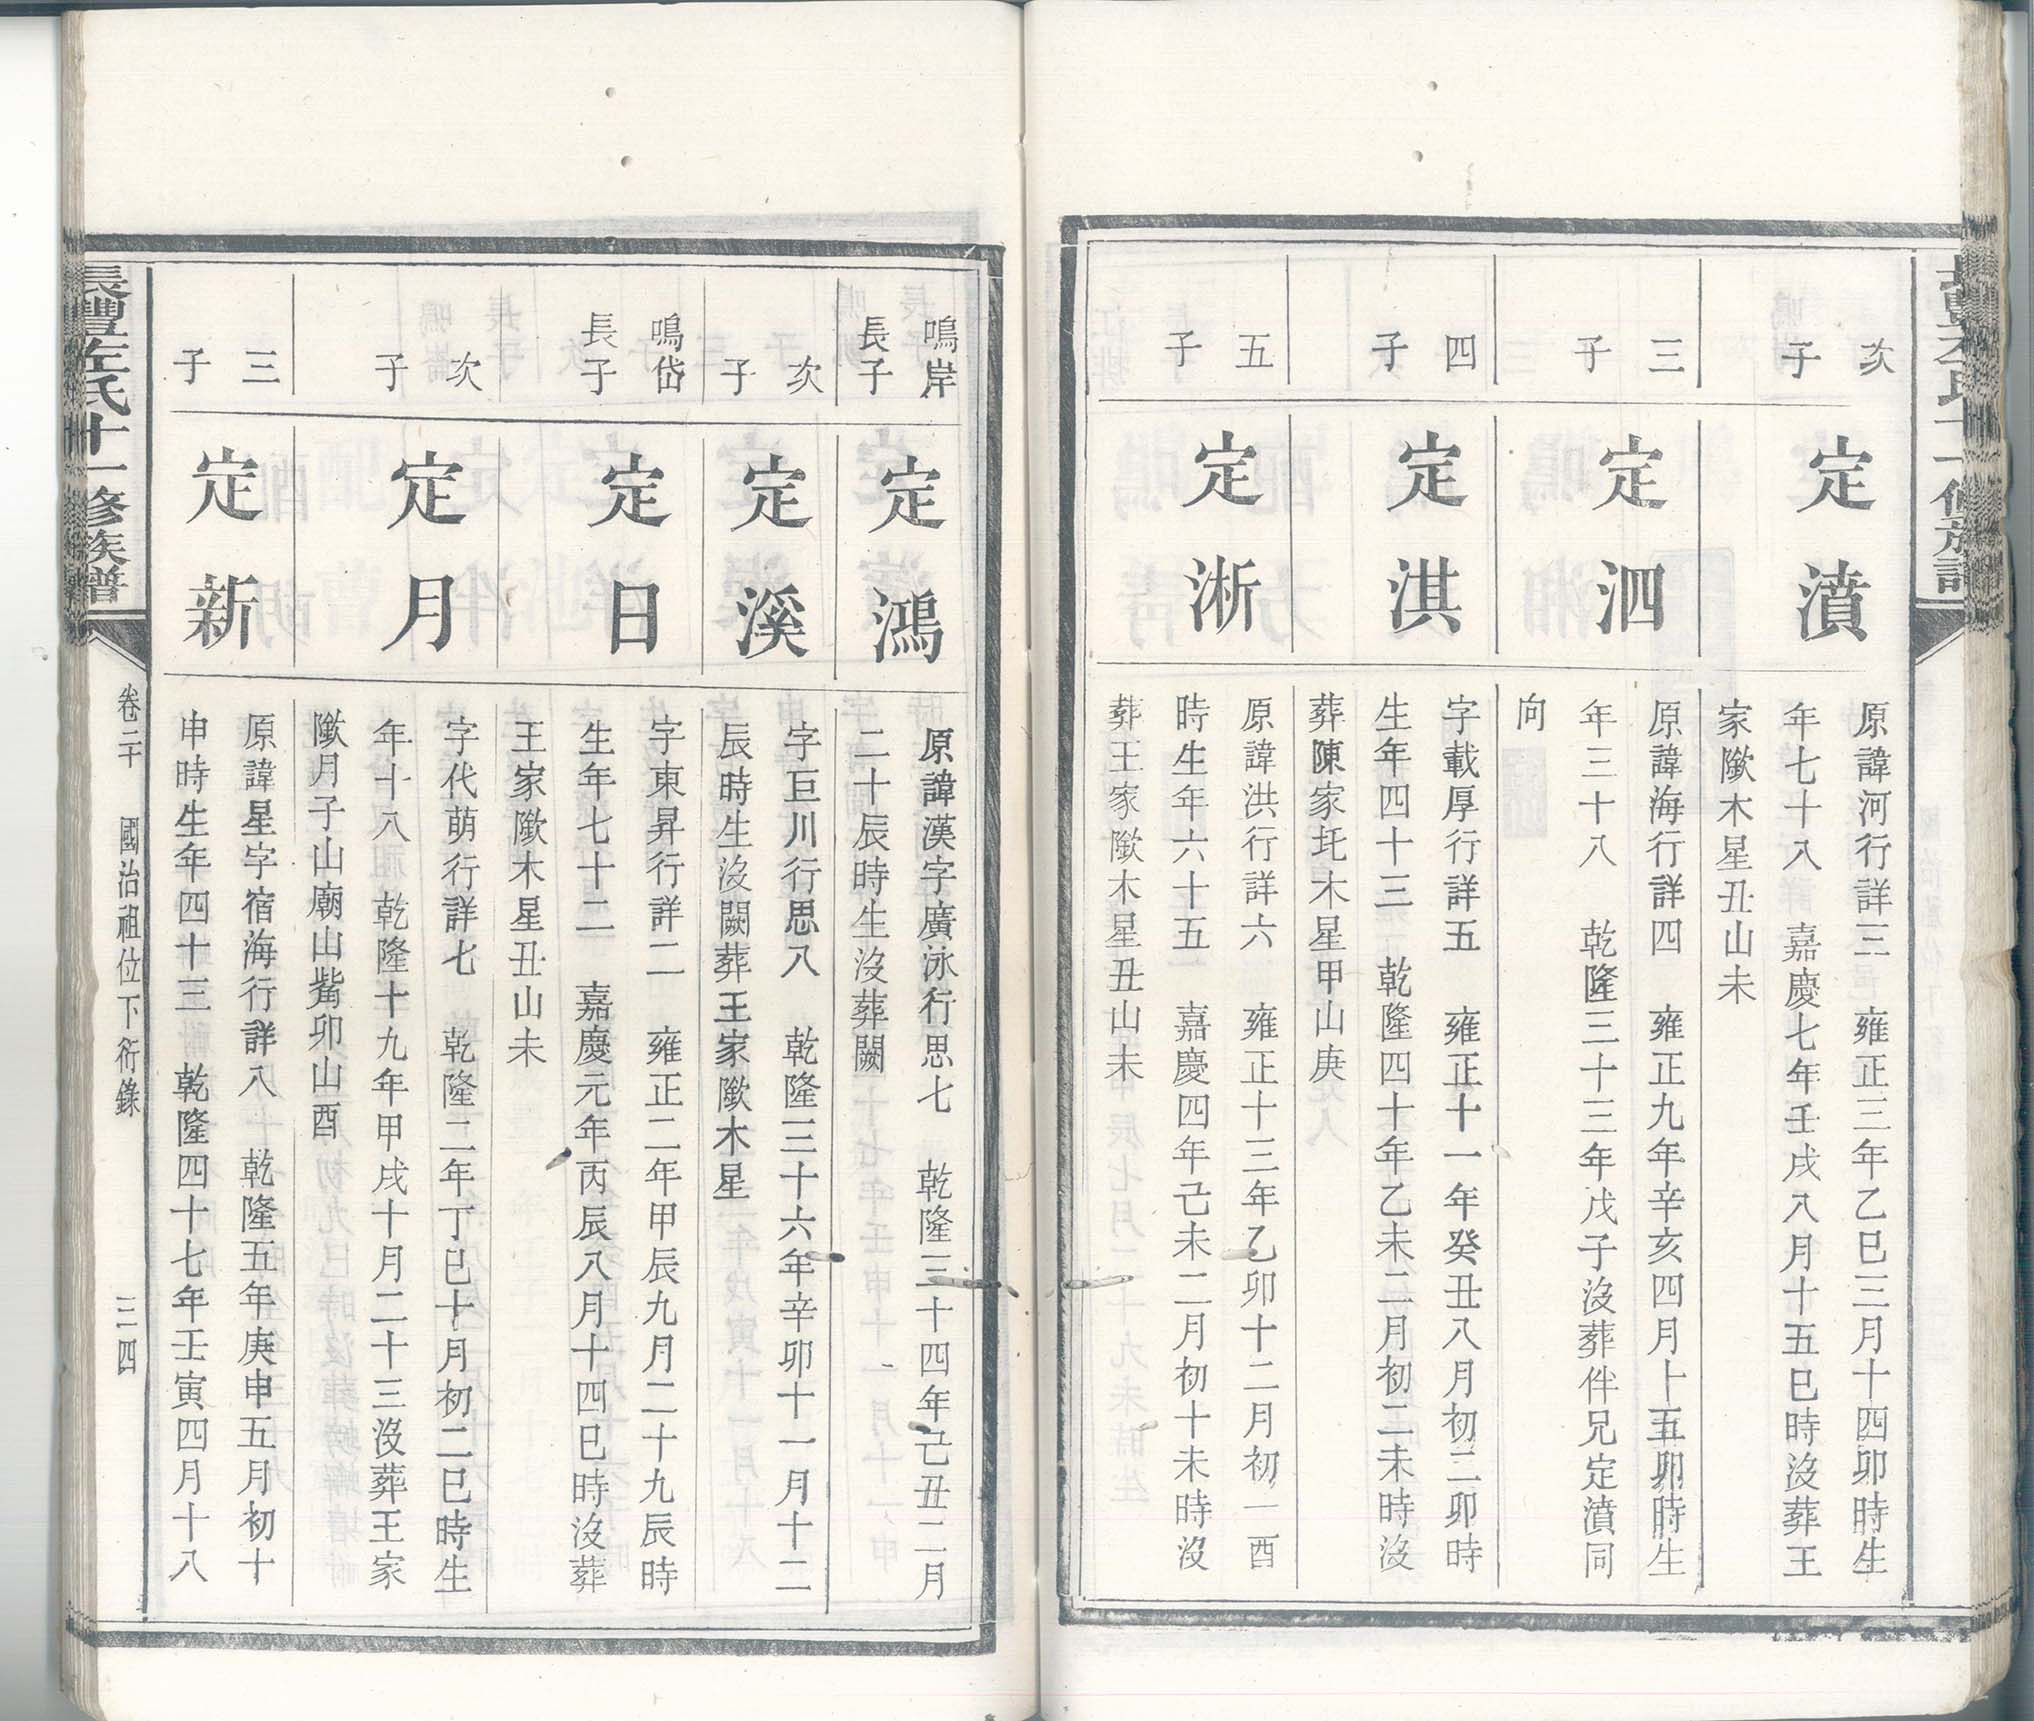 長豐左氏十一修族譜
次子
定濆
原諱河行詳三　雍正三年乙巳三月十四卯時生
年七十八　嘉慶七年壬戌八月十五巳時沒葬王
家歞木星丑山未
三子
定泗
原諱海行詳四　雍正九年辛亥四月十五卯時生
年三十八　乾隆三十三年戊子沒葬伴兄定濆同
向
四子
定淇
字載厚行詳五　雍正十一年癸丑八月初二卯時
生年四十三　乾隆四十年乙未二月初二未時沒
葬陳家圫木星甲山庚
五子
定淅
原諱洪行詳六　雍正十三年乙卯十二月初一酉
時生年六十五　嘉慶四年己未二月初十未時沒
葬王家歞木星丑山未
鳴岸長子
定鴻
原諱漢字廣泳行思七　乾隆三十四年己丑二月
二十辰時生沒葬闕
次子
定溪
字巨川行思八　乾隆三十六年辛卯十一月十二
辰時生沒闕葬王家歞木星
鳴岱長子
定日
字東昇行詳二　雍正二年甲辰九月二十九辰時
生年七十二　嘉慶元年丙辰八月十四巳時沒葬
王家歞木星丑山未
次子
定月
字代萌行詳七　乾隆二年丁巳十月初二巳時生
年十八　乾隆十九年甲戌十月二十三沒葬王家
歞月子山廟山觜卯山酉
三子
定新
原諱星字宿海行詳八　乾隆五年庚申五月初十
申時生年四十三　乾隆四十七年壬寅四月十八
長豐左氏十一修族譜
卷二十　國治祖位下衍錄　三四